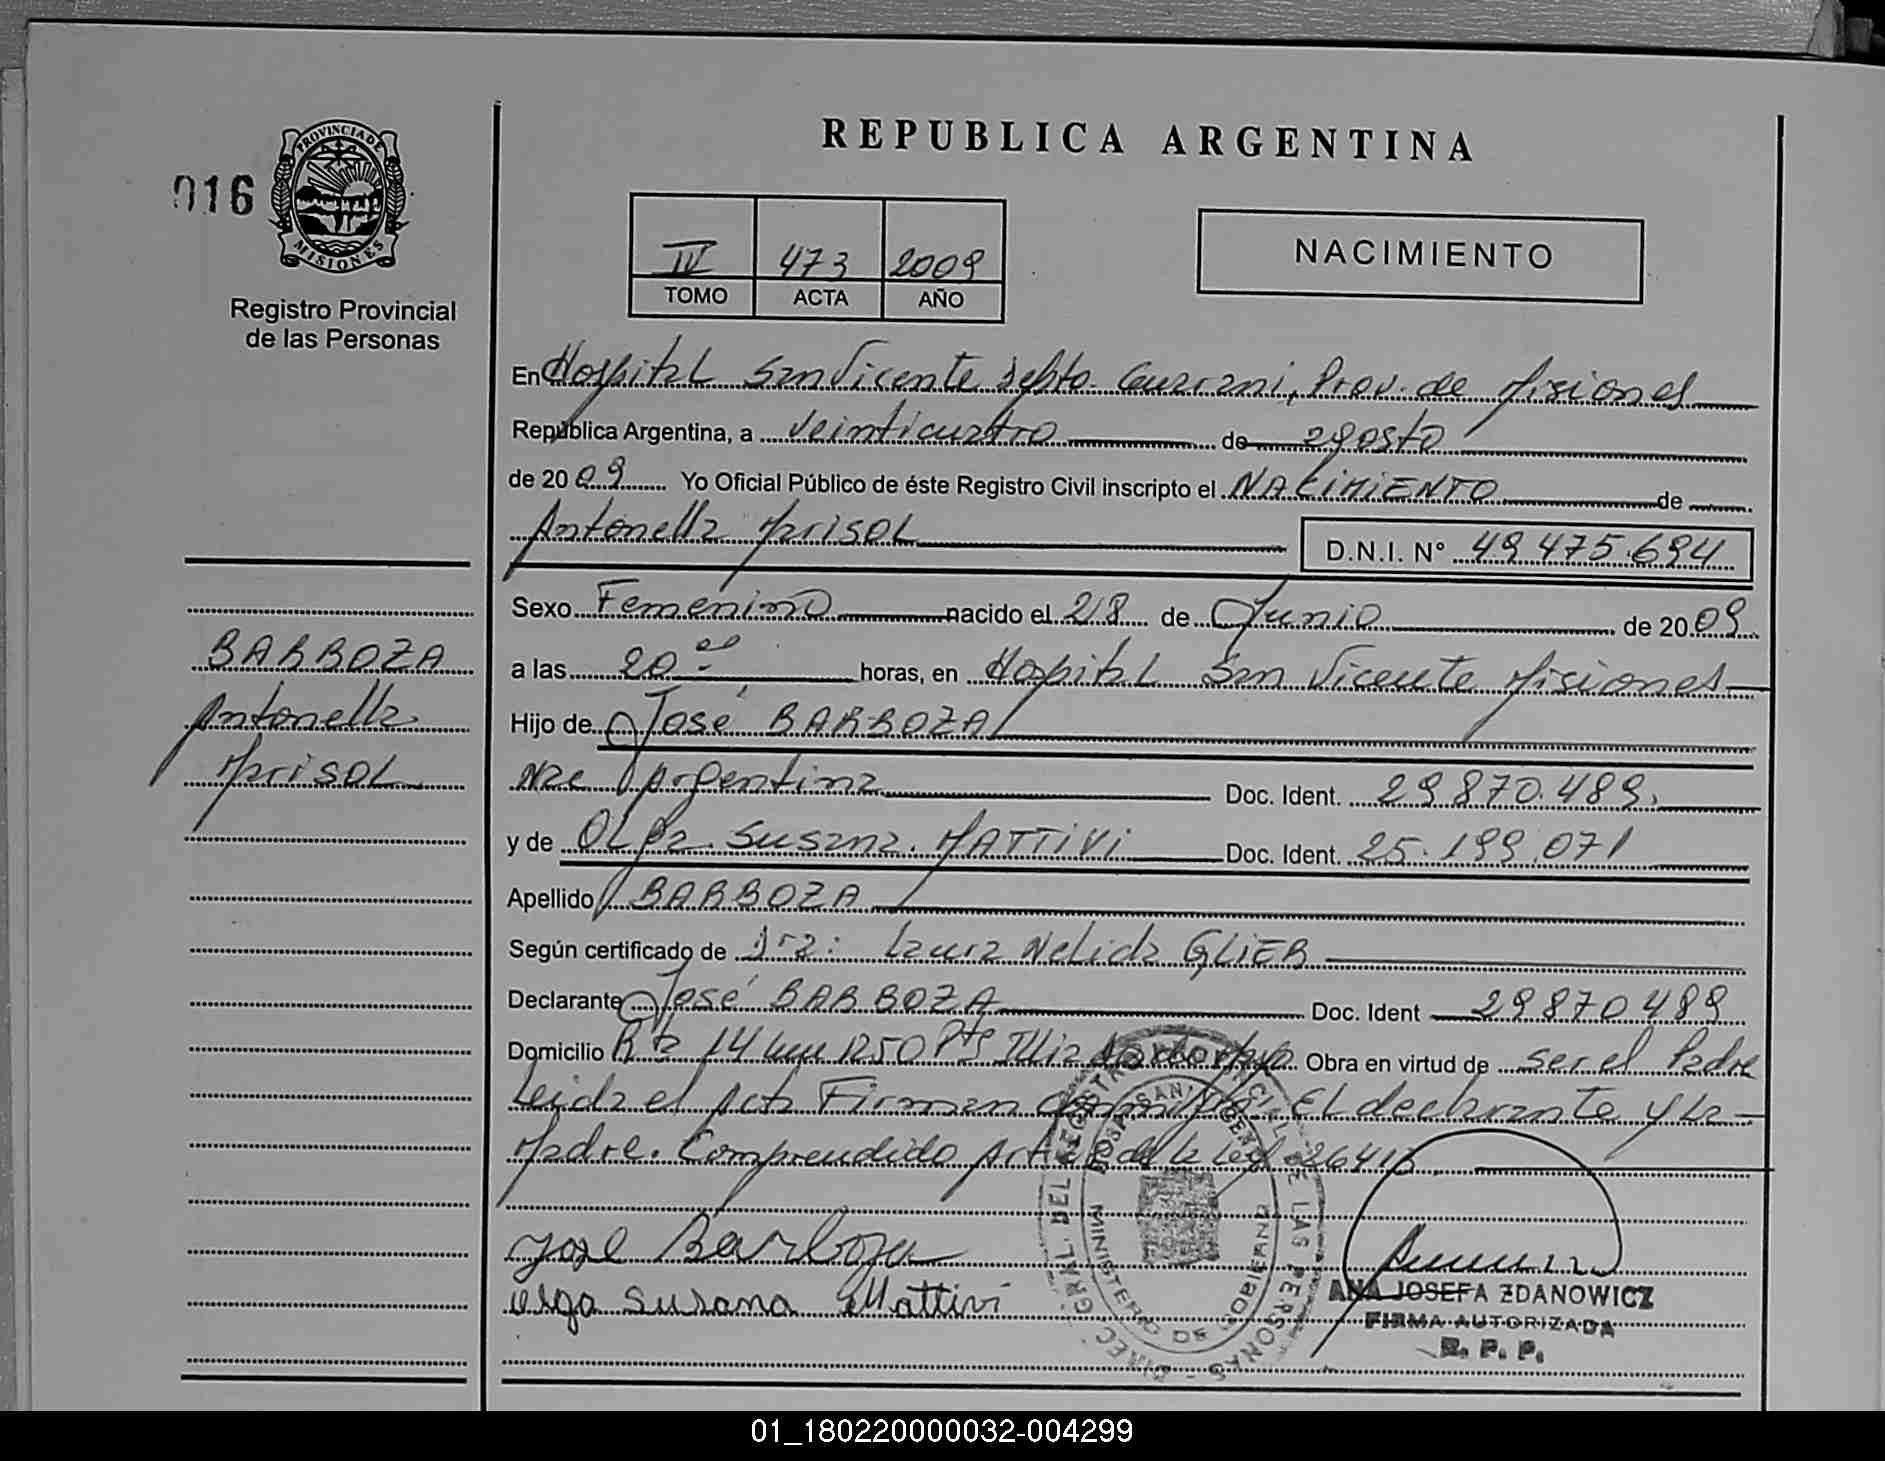 REPUBLICA ARGENTINA
016
PROVINCIA DE
MISIONES
Registro Provincial
de las Personas
IV 473 2009
TOMO ACTA AÑO
NACIMIENTO
En Hospital San Vicente depto. Guarani, Prov. de Misiones
República Argentina, a veinticuatro de agosto
de 2009 Yo Oficial Público de éste Registro Civil inscripto el NACIMIENTO de
Antonella Marisol D.N.I. N° 49.475.694
Sexo Femenino nacido el 28 de Junio de 2009
a las 20 horas, en Hospital San Vicente Misiones
Hijo de José BARBOZA
Nac Argentina Doc. Ident. 29.870.489.
y de OLga Susana MATTIVI Doc. Ident. 25.199.071
Apellido BARBOZA
Según certificado de Dra: Laura Nelida GLIER
Declarante José BARBOZA Doc. Ident 29870489
Domicilio Rta 14 km 1250 Pte Illia Obra en virtud de ser el Padre
Leida el Acta Firman El declarante y La
Madre. Comprendido Art de la Ley 26413
BARBOZA
Antonella
Marisol
Jose Barboza
Olga Susana Mattivi
DIREC. GRAL. DEL REGISTRO PROVINCIAL DE LAS PERSONAS
MINISTERIO DE GOBIERNO
ANA JOSEFA ZDANOWICZ
FIRMA AUTORIZADA
R. P. P.
01_180220000032-004299